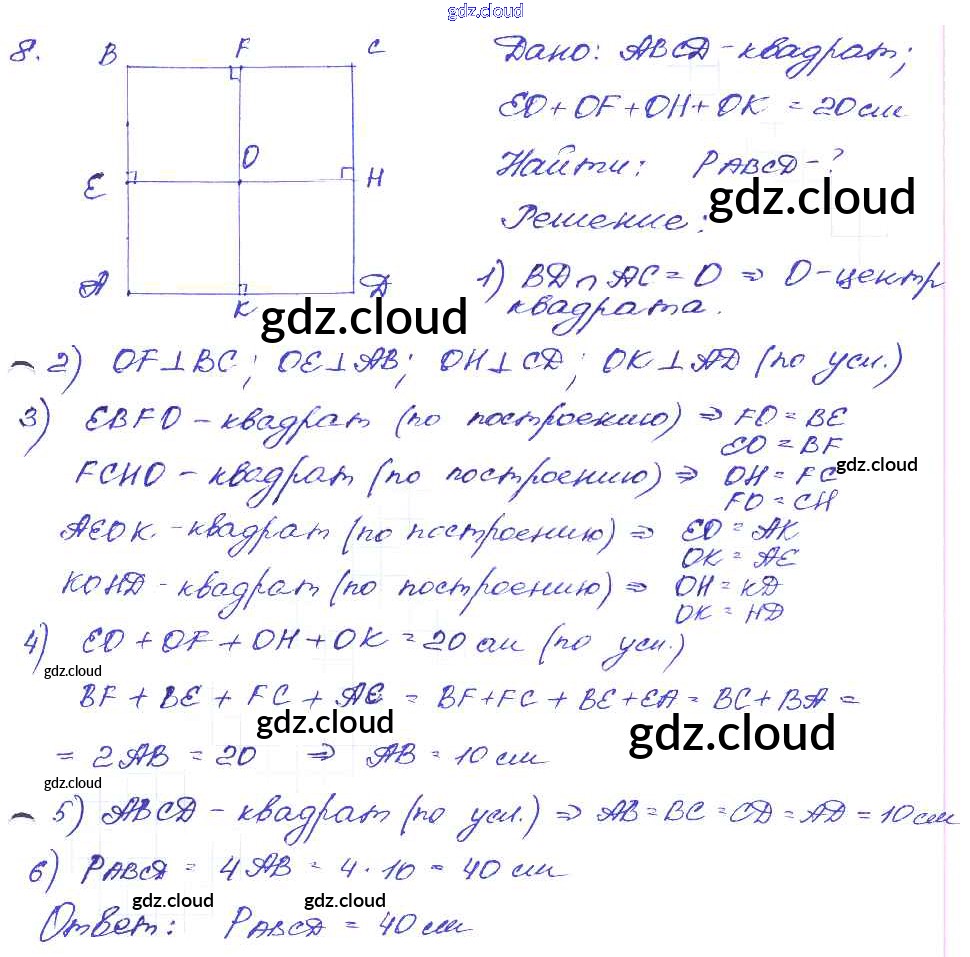 gdz.cloud
8.
B F C
O
E H
A K D
Дано: ABCD - квадрат;
EO + OF + OH + OK = 20 см
Найти: PABCD - ?
gdz.cloud
Решение:
1) BD ∩ AC = O ⇒ O - центр
квадрата.
gdz.cloud
2) OF ⊥ BC; OE ⊥ AB; OH ⊥ CD; OK ⊥ AD (по усл.)
3) EBFO - квадрат (по построению) ⇒ FO = BE
EO = BF
gdz.cloud
FCHO - квадрат (по построению) ⇒ OH = FC
FO = CH
AEOK - квадрат (по построению) ⇒ EO = AK
OK = AE
KOHD - квадрат (по построению) ⇒ OH = KD
OK = HD
4) EO + OF + OH + OK = 20 см (по усл.)
gdz.cloud
BF + BE + FC + AE = BF + FC + BE + EA = BC + BA =
gdz.cloud
gdz.cloud
= 2AB = 20 ⇒ AB = 10 см
gdz.cloud
5) ABCD - квадрат (по усл.) ⇒ AB = BC = CD = AD = 10 см
6) PABCD = 4AB = 4 · 10 = 40 см
gdz.cloud
gdz.cloud
Ответ: PABCD = 40 см